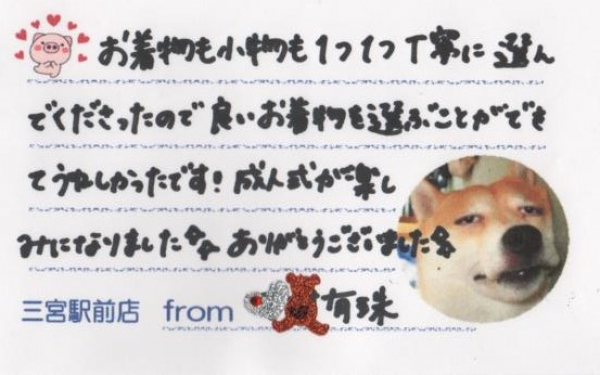 お着物も小物も1つ1つ丁寧に選ん
でくださったので良いお着物を選ぶことができ
てうれしかったです！成人式が楽し
みになりました☆☆ありがとうございました☆
三宮駅前店 from 有珠